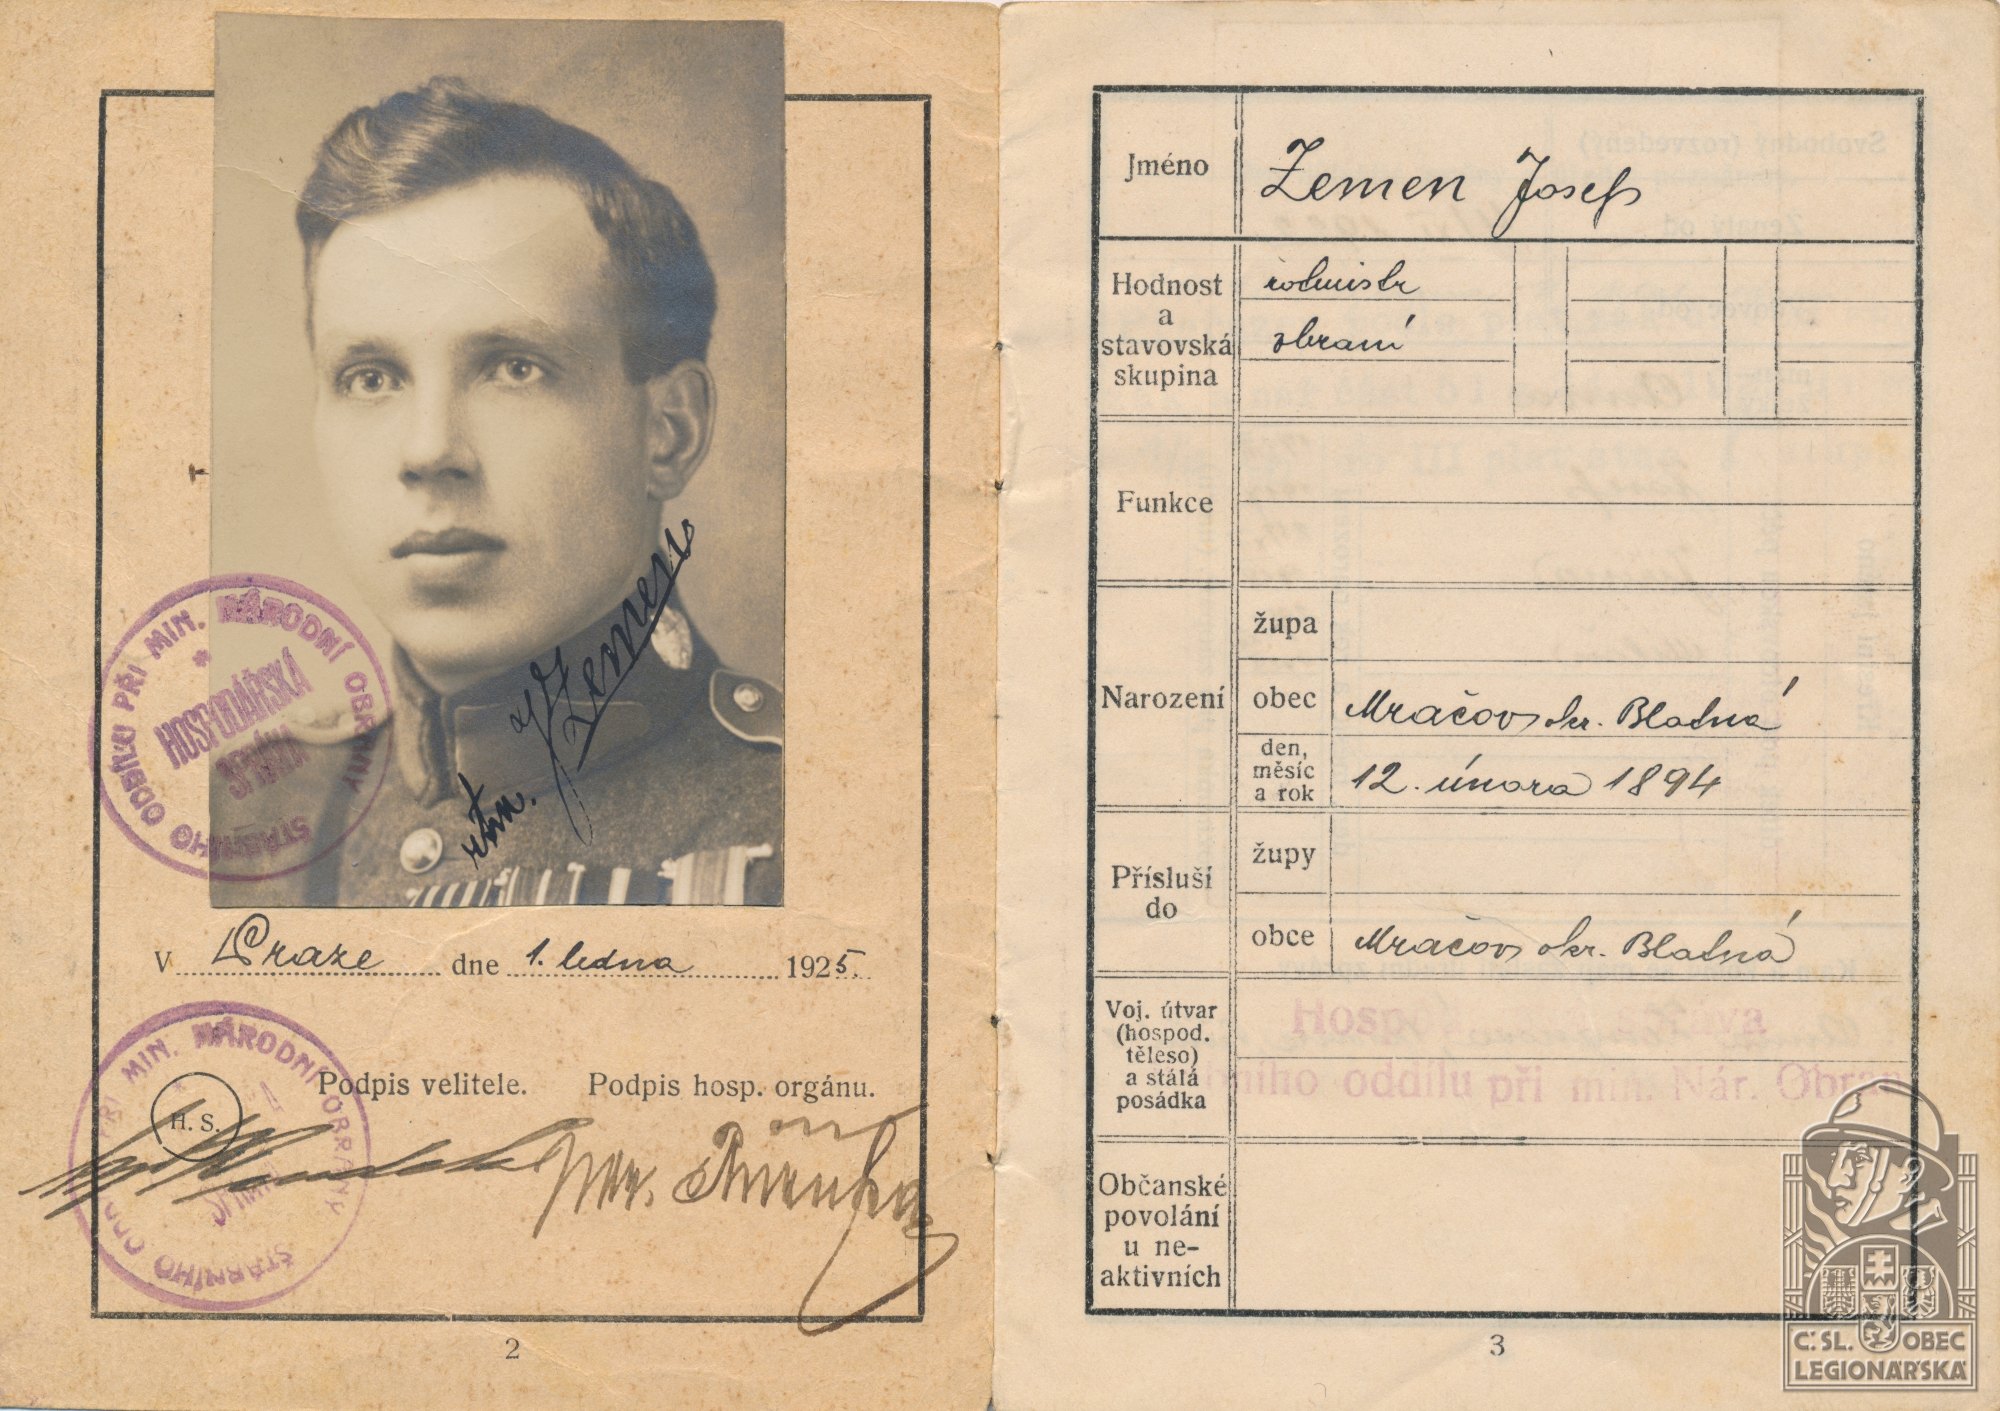 ŠTÁBNÍHO ODDÍLU PŘI MIN. NÁRODNÍ OBRANY
HOSPODÁŘSKÁ
SPRÁVA
rtm. J Zemen
V Praze dne 1. ledna 1925.
MIN. NÁRODNÍ OBRANY
Podpis velitele. Podpis hosp. orgánu.
H. S.
2
Jméno Zemen Josef
Hodnost rotmistr
a
stavovská zbraní
skupina
Funkce
Narození
župa
obec Mračov okr. Blatná
den,
měsíc 12. února 1894
a rok
Přísluší
do
župy
obce Mračov okr. Blatná
Voj. útvar
(hospod.
těleso)
a stálá
posádka
oddílu při min. Nár. Obrany
Občanské
povolání
u ne-
aktivních
3
Č. SL. OBEC
LEGIONÁŘSKÁ